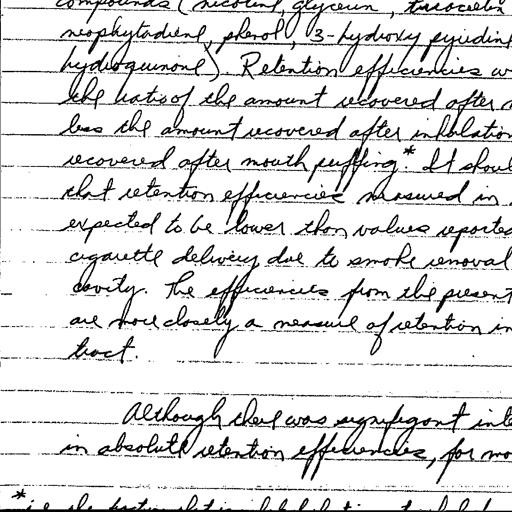 compounds (nicotine, glycerin, triacetin
neophytadiene, phenol, 3-hydroxy pyridine
hydroquinone). Retention efficiencies w
the ratio of the amount recovered after m
less the amount recovered after inhalation
recovered after mouth puffing.* It shoul
that retention efficiencies measured in
expected to be lower than values reported
cigarette delivery due to smoke removal
cavity. The efficiencies from the present
are more closely a measure of retention in
tract.
Although there was significant inte
in absolute retention efficiencies, for mo
* i.e.